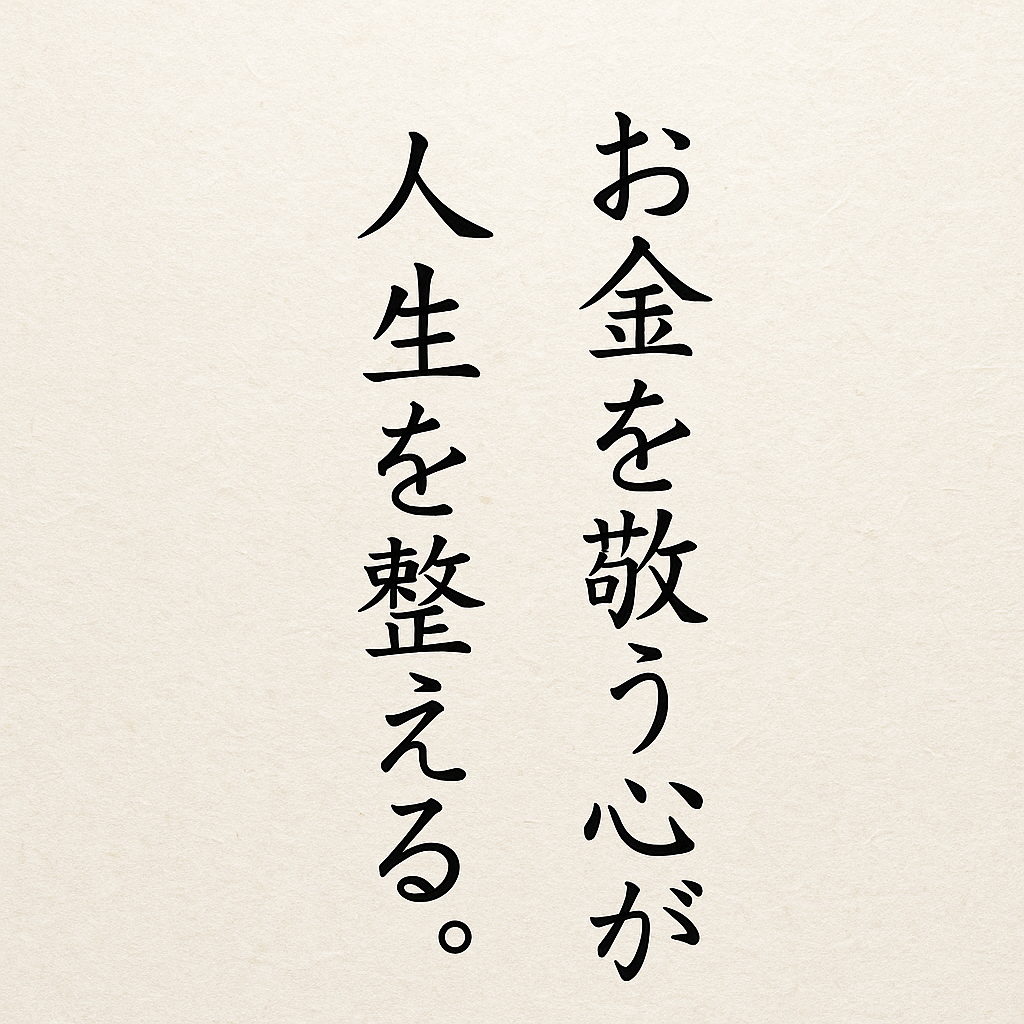 お金を敬う心が
人生を整える。